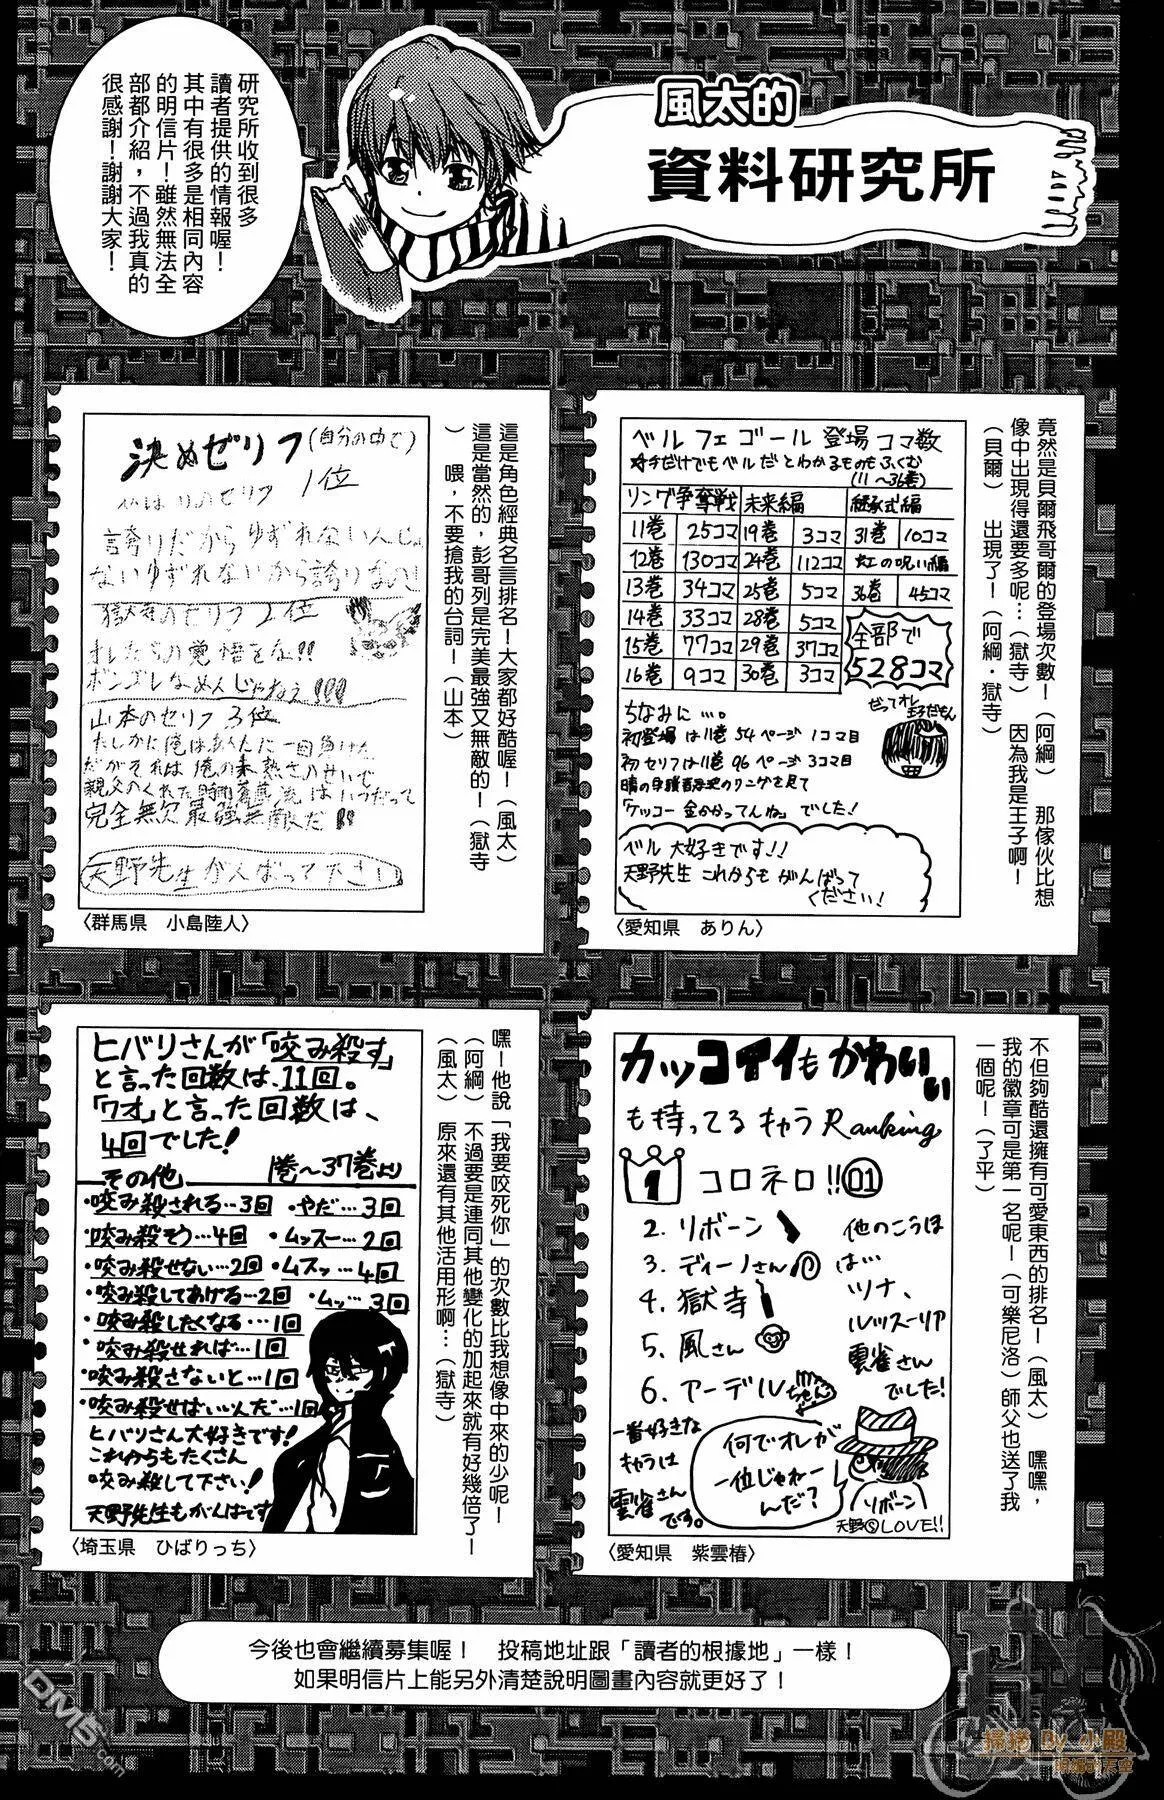 風太的
資料研究所
研究所收到很多
讀者提供的情報喔！
其中有很多是相同內容
的明信片！雖然無法全
部都介紹，不過我真的
很感謝！謝謝大家！
竟然是貝爾飛哥爾的登場次數！（阿綱）　那傢伙比想
像中出現得還要多呢…（獄寺）　因為我是王子啊！
（貝爾）　出現了！（阿綱・獄寺）
ベルフェゴール登場コマ数
☆手だけでもベルだとわかるものもふくむ
(11〜36巻)
リング争奪戦 未来編 継承式編
11巻 25コマ 19巻 3コマ 31巻 10コマ
12巻 130コマ 24巻 112コマ 虹の呪い編
13巻 34コマ 25巻 5コマ 36巻 45コマ
14巻 33コマ 28巻 5コマ
15巻 77コマ 29巻 37コマ
16巻 9コマ 30巻 3コマ
全部で
528コマ
ちなみに…。
だってオレ
王子だもん
初登場は11巻 54ページ 1コマ目
初セリフは11巻 96ページ 3コマ目
晴の争奪戦のリングを見て
「ケッコー金かかってんね」でした！
ベル大好きです！！
天野先生これからもがんばって
ください！
〈愛知県　ありん〉
這是角色經典名言排名！大家都好酷喔！（風太）
這是當然的，彭哥列是完美最強又無敵的！（獄寺
）　喂，不要搶我的台詞！（山本）
決めゼリフ(自分の中で)
1位
誇りだからゆずれないんじゃ
ないゆずれないから誇りなの！
獄寺のセリフ 2位
オレたちの覚悟をな!!
ボンゴレなめんじゃねえ!!!
山本のセリフ 3位
たしかに俺はあんたに一回負けた
だがそれは俺の未熟さのせいで
親父のくれた時雨蒼燕流はいつだって
完全無欠最強無敵だ!!
天野先生がんばって下さい
〈群馬県　小島陸人〉
不但夠酷還擁有可愛東西的排名！（風太）　嘿嘿，
我的徽章可是第一名呢！（可樂尼洛）師父也送了我
一個呢！（了平）
カッコイイもかわいい
も持ってるキャラRanking
1 コロネロ!!01
2. リボーン
3. ディーノさん
4. 獄寺
5. 風さん
6. アーデルちゃん
他のこうほ
は…
ツナ、
ルッスーリア
雲雀さん
でした！
一番好きな
キャラは
雲雀さん
です。
何でオレが
一位じゃねー
んだ？
リボーン
天野ⓈLOVE!!
〈愛知県　紫雲椿〉
嘿！他說「我要咬死你」的次數比我想像中來的少呢！
（阿綱）　不過要是連同其他變化的加起來就有好幾倍了！
（風太）　原來還有其他活用形啊…（獄寺）
ヒバリさんが「咬み殺す」
と言った回数は、11回。
「ワオ」と言った回数は、
4回でした！
その他 1巻〜37巻より
・咬み殺される…3回 ・やだ…3回
・咬み殺そう…4回 ・ムッスー…2回
・咬み殺せない…2回 ・ムスッ…4回
・咬み殺してあげる…2回 ・ムッ…3回
・咬み殺したくなる…1回
・咬み殺せれば…1回
・咬み殺さないと…1回
・咬み殺せばいいんだ…1回
ヒバリさん大好きです！
これからもたくさん
咬み殺して下さい！
天野先生もがんばです
〈埼玉県　ひばりっち〉
今後也會繼續募集喔！　投稿地址跟「讀者的根據地」一樣！
如果明信片上能另外清楚說明圖畫內容就更好了！
掃描 By 小殿